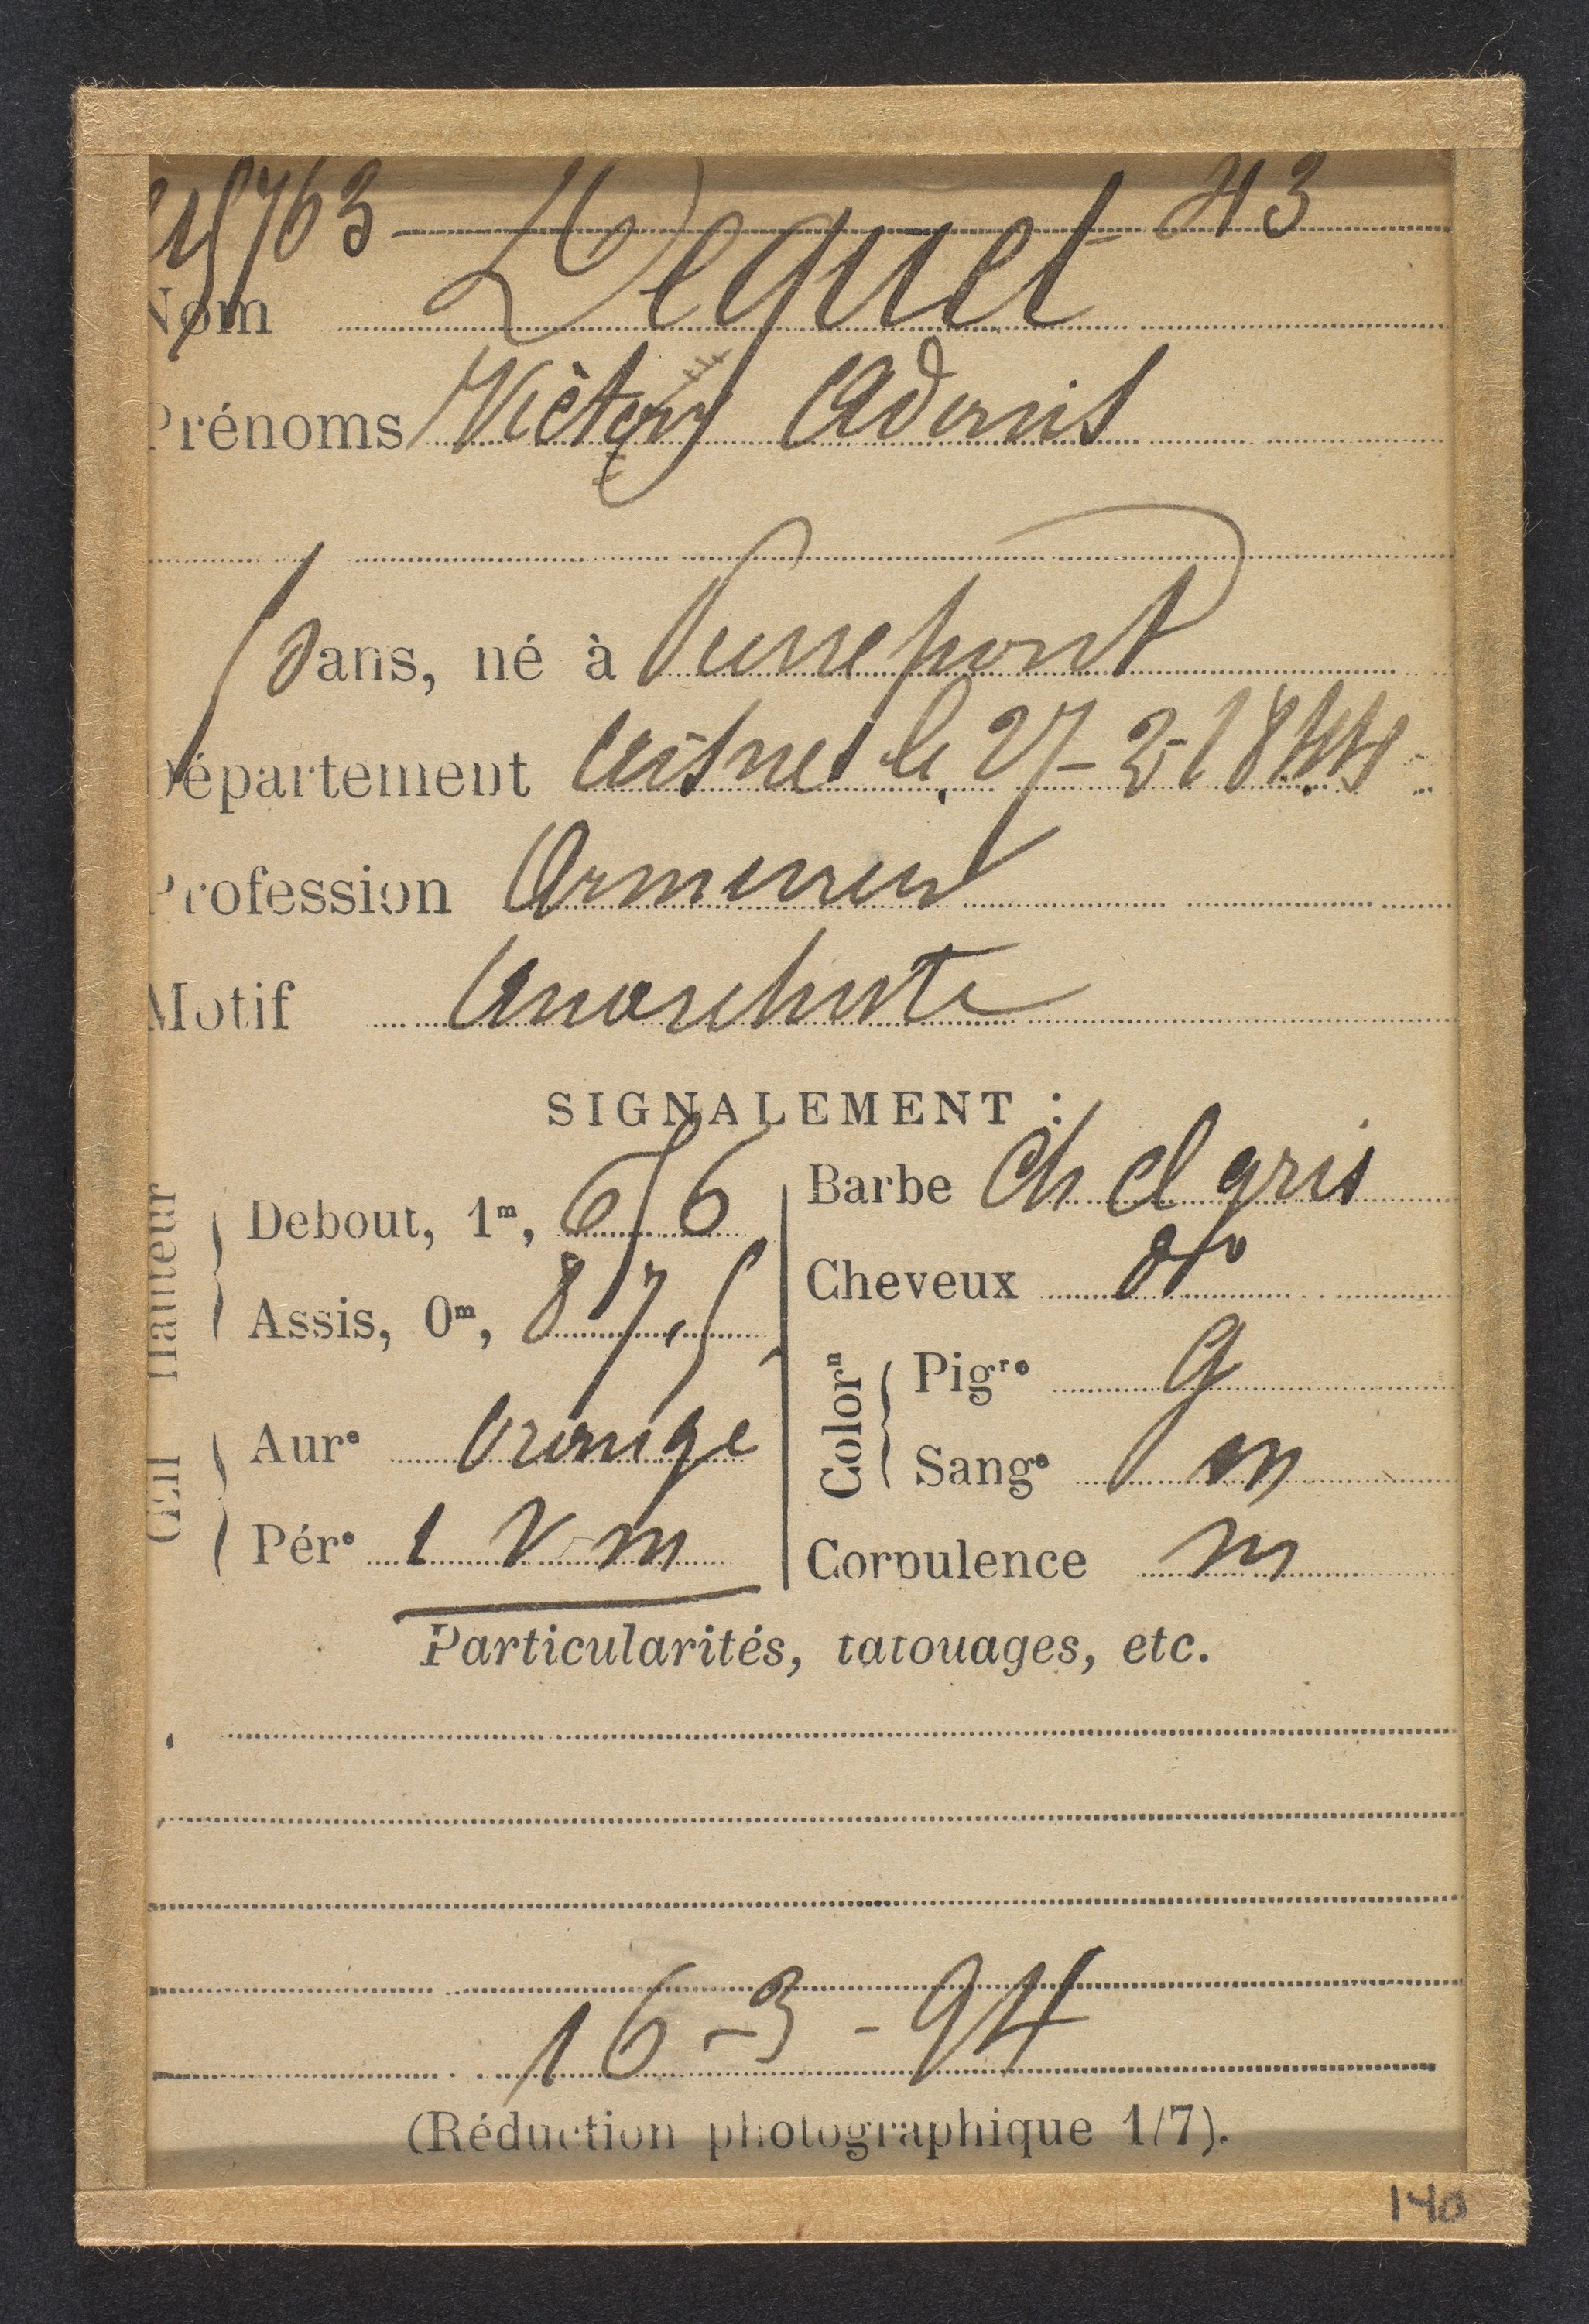 15763 - 43
Nom Leguet
Prénoms Victor Adonis
50 ans, né à Pierrepont
Département Aisne le 27-3-1844
Profession Armurier
Motif Anarchiste
SIGNALEMENT :
Hauteur
Debout, 1m, 65 6
Assis, 0m, 87,5
Œil
Aure Orange
Pére i v m
Barbe Ch cl gris
Cheveux do
Colorn
Pigre g
Sange m
Corpulence m
Particularités, tatouages, etc.
16-3-94
(Réduction photographique 1/7).
140